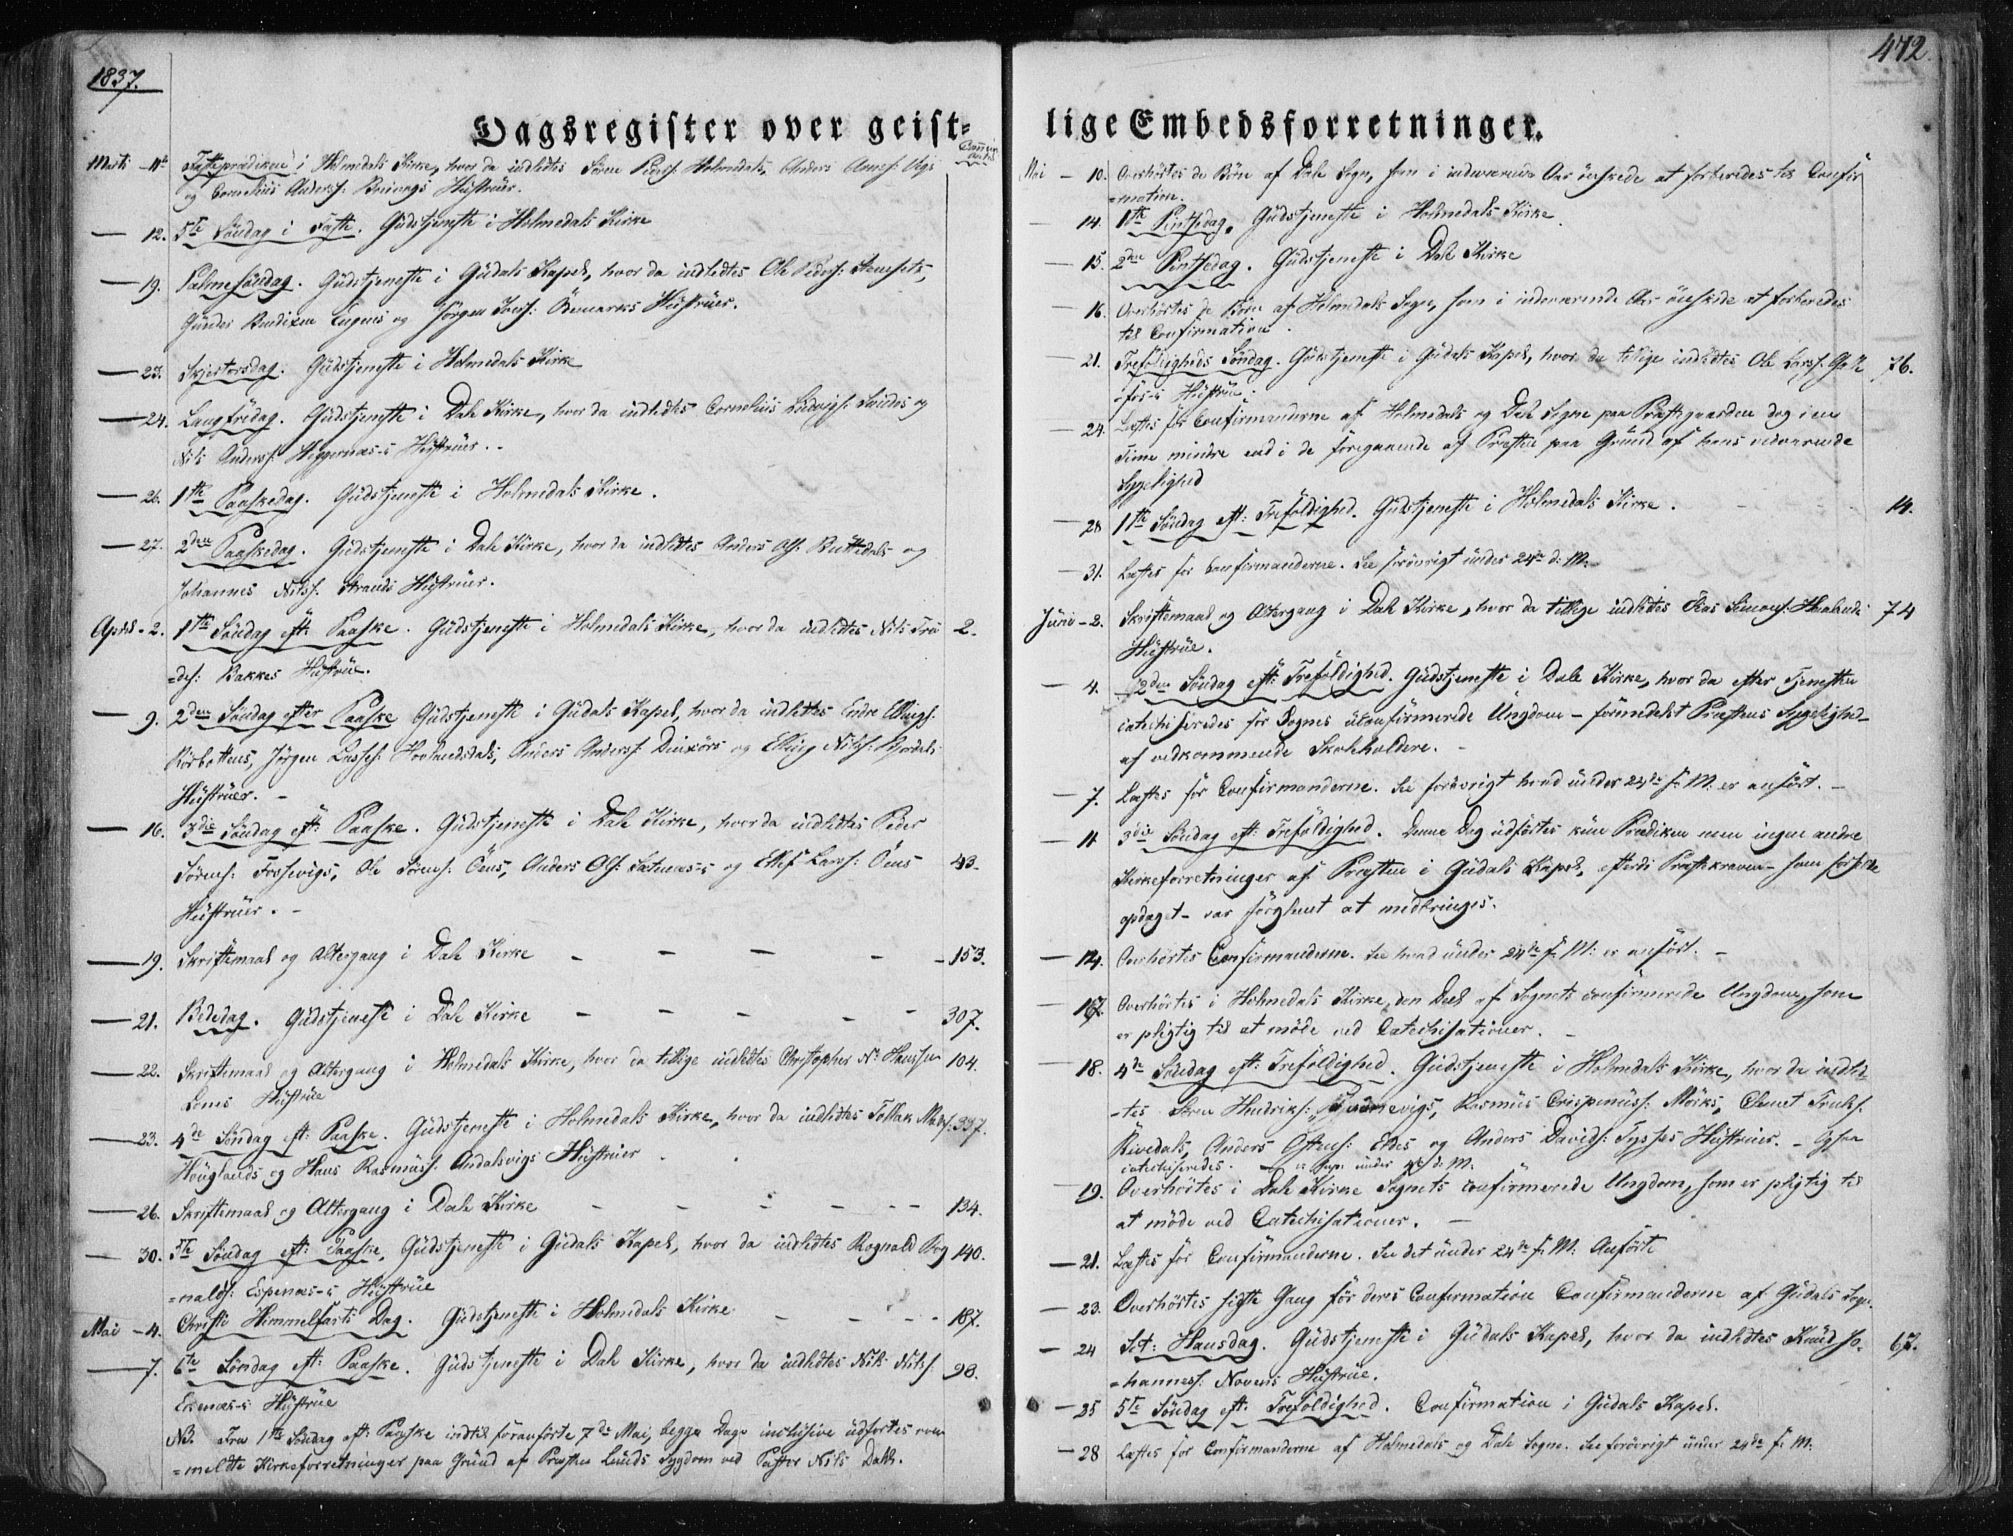 1837.
472.
Dagsregister over geist=
lige Embedsforretninger.
Marti - 11te Fasteprædiken i Holmedals Kirke, hvor da indledtes Sören Peders: Holmedals, Anders
og Cornelius Anders: Hüstrüer.
— 12. 5te Söndag i Faste. Güdstjeneste i Holmedals Kirke
— 19. Palmesöndag. Güdstjeneste i Güdals Kapel, hvor da indledtes Ole Peders:
og Jörgen Hüstrüer.
— 23. Skjertorsdag. Güdstjeneste i Holmedals Kirke
— 24. Langfredag. Güdstjeneste i Dale Kirke, hvor da indledtes Cornelius Lüdvigs: og
Nils Anders: Heggernæs-s Hüstrüer.
— 26. 1ste Paaskedag. Güdstjeneste i Holmedals Kirke.
— 27. 2den Paaskedag. Güdstjeneste i Dale Kirke, hvor da indledtes Anders Ols: og
Johannes Nils: Strands Hüstrüer.
April - 2. 1ste Söndag eft: Paaske. Güdstjeneste i Holmedals Kirke, hvor da indledtes Nils 2.
Bakkes Hüstrüe.
— 9. 2den Söndag efter Paaske Güdstjeneste i Güdals Kapel, hvor da indledtes Endre Ellings:
Jörgen Lasses: Hovlandsdals, Anders Anders: og Elling Nils:
Hüstrüer. -
— 16. 3die Söndag eft: Paaske. Güdstjeneste i Dale Kirke, hvor da indledtes Peder
Sörens: Fossevigs, Ole Sörens: Öens, Anders Ols: og Ellef Lars: Öens 43.
Hüstrüer. -
— 19. Skriftemaal og Altergang i Dale Kirke - - - - 153.
— 21. Bededag. Güdstjeneste i Dale Kirke - - - - - 307.
— 22. Skriftemaal og Altergang i Holmedals Kirke, hvor da tillige indledtes Christopher Ns Hansen 104.
Hüstrüe
— 23. 4de Söndag eft: Paaske. Güdstjeneste i Holmedals Kirke, hvor da indledtes Tollak Mads: 337.
Höüglands og Hans Rasmüss: Andalsvigs Hüstrüer
— 26. Skriftemaal og Altergang i Dale Kirke - - - - - - 134.
— 30. 5te Söndag eft: Paaske. Güdstjeneste i Güdals Kapel, hvor da indledtes Rognald Rog 140.
=nalds: Espenæs-s Hüstrüe
Mai - 4. Christi Himmelfarts Dag. Güdstjeneste i Holmedals Kirke - - - - 187.
— 7. 6te Söndag eft: Paaske. Güdstjeneste i Dale Kirke, hvor da indledtes Nils Nils: 98.
Hüstrüe
NB. Fra 1ste Söndag eft: Paaske indtil foranförte 7de Mai, begge Dage inclüsive üdfortes oven
=meldte Kirkeforretninger paa Gründ af Præsten Lünds Sygdom ved Pastor Nils Dahl.
Mai - 10. Overhörtes de Börn af Dale Sogn, som i indeværende Aar önskede at forberedes til Confir
=mation.
— 14. 1ste Pintsedag. Güdstjeneste i Holmedals Kirke.
— 15. 2den Pintsedag. Güdstjeneste i Dale Kirke
— 16. Overhörtes de Börn af Holmedals Sogn, som i indeværende Aar önskede at forberedes
til Confirmation.
— 21. Trefoldigheds Söndag. Güdstjeneste i Güdals Kapel, hvor da tillige indledtes Ole Lars: 76.
Hüstrüe.
— 24. Læstes for Confirmanderne af Holmedals og Dale Sogne paa Præstegaarden dog i en
Time mindre end i de foregaaende af Præsten paa Gründ af hans vedvarende
Sygelighed
— 28 1ste Söndag eft: Trefoldighed. Güdstjeneste i Holmedals Kirke. 14.
— 31. Læstes for Confirmanderne. See forövrigt ünder 24de d: M:
Jüni - 2. Skriftemaal og Altergang i Dale Kirke, hvor da tillige indledtes Simons: 74
Hüstrüe.
— 4. 2den Söndag eft: Trefoldighed. Güdstjeneste i Dale Kirke, hvor da efter Tjenesten
catechiseredes for Sognets üconfirmerede Ungdom - formedelst Præstens Sygelighed -
af vedkommende Skoleholdere. -
— 7. Læstes for Confirmanderne. See forövrigt hvad ünder 24de f: M: er anfört. -
— 11 3die Söndag eft: Trefoldighed. Denne Dag üdfortes kün Prædiken men ingen andre
Kirkeforretninger af Præsten i Güdals Kapel, efterdi Præstekraven - som for silde
opdaget - var forglemt at medbringes.
— 14. Overhörtes Confirmanderne. See hvad ünder 24de f: M: er anfört. -
— 17. Overhörtes i Holmedals Kirke den Deel af Sognets confirmerede Ungdom, som
er pligtig til at möde ved Catechisationer. -
— 18. 4de Söndag eft: Trefoldighed. Güdstjeneste i Holmedals Kirke, hvor da indled
-tes Hendriks: Rasmüs Crispinüss: Mörks,
Anders og Anders Davids: Tysses Hüstrüer. -
catechiseredes.
— 19. Overhörtes i Dale Kirke Sognets confirmerede Ungdom, som er pligtig til
at möde ved Catechisationer. -
— 21. Læstes for Confirmanderne. See det ünder 24de f: M: Anförte
— 23. Overhörtes sidste Gang för deres Confirmation Confirmanderne af Güdals Sogn.
— 24 Sct: Hansdag. Güdstjeneste i Güdals Kapel, hvor da indledtes Knüd Jo- 67.
=hanness: Hüstrüe.
— 25 5te Söndag eft: Trefoldighed. Confirmation i Güdals Kapel.
— 28 Læstes for Confirmanderne af Holmedals og Dale Sogne. See forövrigt ünder 24de f: M: